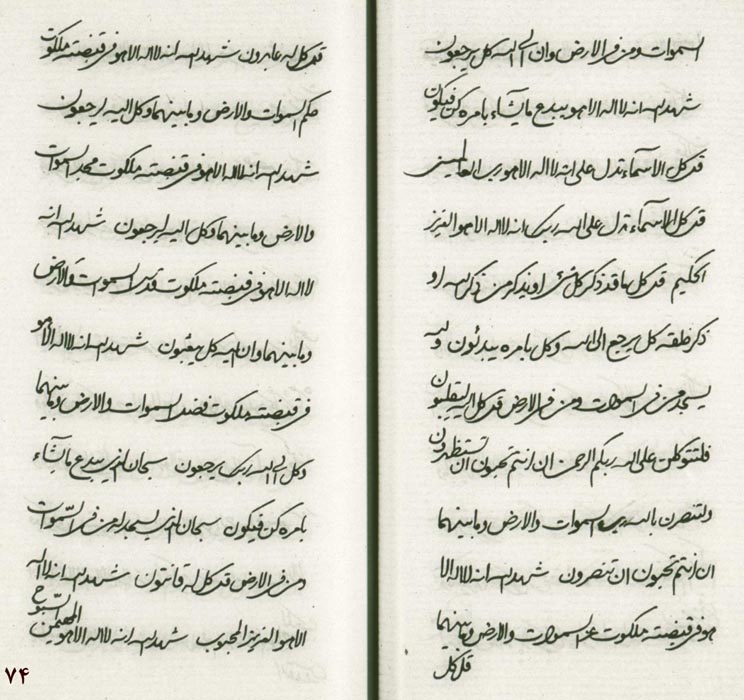 السموات ومن فى الارض وان الى الله كل يرجعون
شهد الله انه لا اله الا هو يبدع ما يشاء بامره كن فيكون
قل كل الاسماء تدل على انه لا اله الا هو رب العالمين
قل كل الاسماء تدل على الله ربك انه لا اله الا هو العزيز
الحكيم قل كل ما قد ذكر كل شئ او يذكر من ذكر الله او
ذكر خلقه كل يرجع الى الله وكل بامره يبدئون ولله
يسجد من فى السموات ومن فى الارض قل كل اليه لينقلبون
فلتتوكلن على الله ربكم الرحمن ان انتم تحبون ان تستظهرون
ولتنصرن بالله رب السموات والارض وما بينهما
ان انتم تحبون ان تنصرون شهد الله انه لا اله الا
هو فى قبضته ملكوت عز السموات والارض وما بينهما
قل كل
قل كل له عابدون شهد الله انه لا اله الا هو فى قبضته ملكوت
حكم السموات والارض وما بينهما وكل اليه ليرجعون
شهد الله انه لا اله الا هو فى قبضته ملكوت مجد السموات
والارض وما بينهما وكل اليه ليرجعون شهد الله انه
لا اله الا هو فى قبضته ملكوت قدس السموات والارض
وما بينهما وان اليه كل يبعثون شهد الله انه لا اله الا هو
فى قبضته ملكوت فضل السموات والارض وما بينهما
وكل الى الله ربك يرجعون سبحان الذى يبدع ما يشاء
بامره كن فيكون سبحان الذى يسجد له من فى السموات
ومن فى الارض قل كل له قانتون شهد الله انه لا اله
الا هو العزيز المحبوب شهد الله انه لا اله الا هو المهيمن السبوح
۷۴